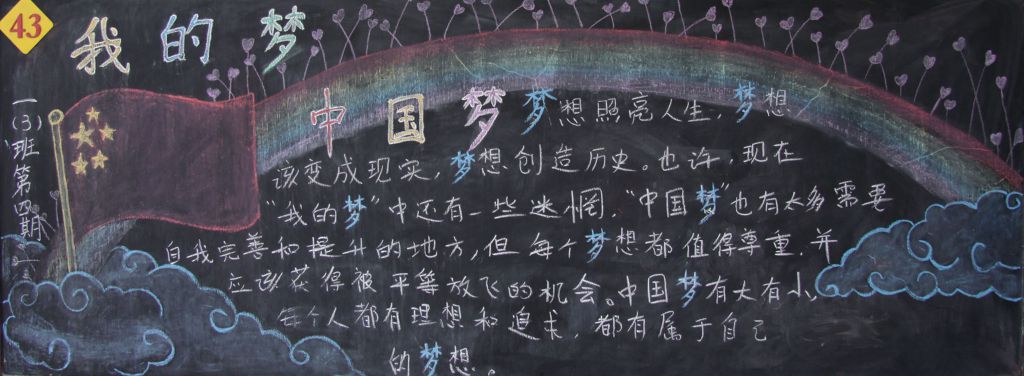 43
我的梦
一(3)班第四期
中国梦 梦想照亮人生,梦想
该变成现实,梦想创造历史。也许,现在
“我的梦”中还有一些迷惘,“中国梦”也有太多需要
自我完善和提升的地方,但每个梦想都值得尊重.并
应该获得被平等放飞的机会。中国梦有大有小,
每个人都有理想和追求,都有属于自己
的梦想。